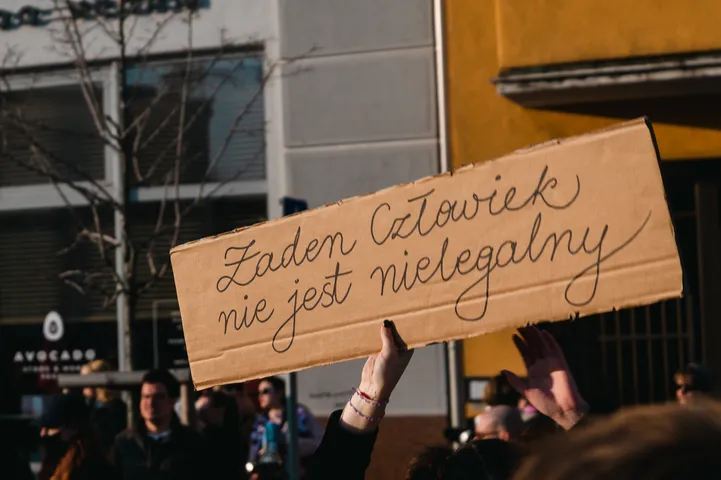 Żaden Człowiek
nie jest nielegalny
AVOCADO